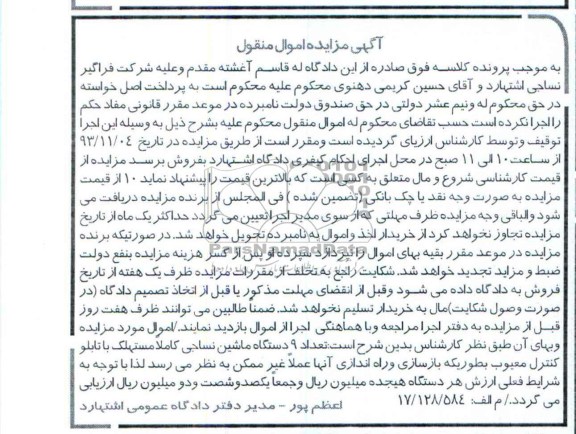 آگهی مزایده اموال منقول
به موجب پرونده کلاسه فوق صادره از این دادگاه له قاسم آغشته مقدم وعلیه شرکت فراگیر
نساجی اشتهارد و آقای حسین کریمی دهنوی محکوم علیه محکوم است به پرداخت اصل خواسته
در حق محکوم له ونیم عشر دولتی در حق صندوق دولت نامبرده در موعد مقرر قانونی مفاد حکم
را اجرا نکرده است حسب تقاضای محکوم له اموال منقول محکوم علیه بشرح ذیل به وسیله این اجرا
توقیف وتوسط کارشناس ارزیای گردیده است ومقرر است از طریق مزایده در تاریخ ۹۳/۱۱/۰۴
از ساعت ۱۰ الی ۱۱ صبح در محل اجرای احکام کیفری دادگاه اشتهارد بفروش برسد مزایده از
قیمت کارشناسی شروع و مال متعلق به کسی است که بالاترین قیمت را پیشنهاد نماید ۱۰ از قیمت
مزایده به صورت وجه نقد یا چک بانکی (تضمین شده) فی المجلس از برنده مزایده دریافت می
شود والباقی وجه مزایده ظرف مهلتی که از سوی مدیر اجرا تعیین می گردد حداکثر یک ماه از تاریخ
مزایده تجاوز نخواهد کرد از خریدار اخذ واموال به نامبرده تحویل خواهد شد. در صورتیکه برنده
مزایده در موعد مقرر بقیه بهای اموال را نپردازد سپرده او پس از کسر هزینه مزایده بنفع دولت
ضبط و مزاید تجدید خواهد شد. شکایت راجع به تخلف از مقررات مزایده ظرف یک هفته از تاریخ
فروش به دادگاه داده می شود وقبل از انقضای مهلت مذکور یا قبل از اتخاذ تصمیم دادگاه (در
صورت وصول شکایت) مال به خریدار تسلیم نخواهد شد. ضمنا طالبین می توانند ظرف هفت روز
قبل از مزایده به دفتر اجرا مراجعه وبا هماهنگی اجرا از اموال بازدید نمایند./اموال مورد مزایده
وبهای آن طبق نظر کارشناس بدین شرح است:تعداد ۹ دستگاه ماشین نساجی کاملا مستهلک با تابلو
کنترل معیوب بطوریکه بازسازی وراه اندازی آنها عملاً غیر ممکن به نظر می رسد لذا با توجه به
شرایط فعلی ارزش هر دستگاه هیجده میلیون ریال وجمعاً یکصدوشصت ودو میلیون ریال ارزیابی
می گردد./ م الف: ۱۷/۱۲۸/۵۸۴ اعظم پور - مدیر دفتر دادگاه عمومی اشتهارد
ParsNamadData